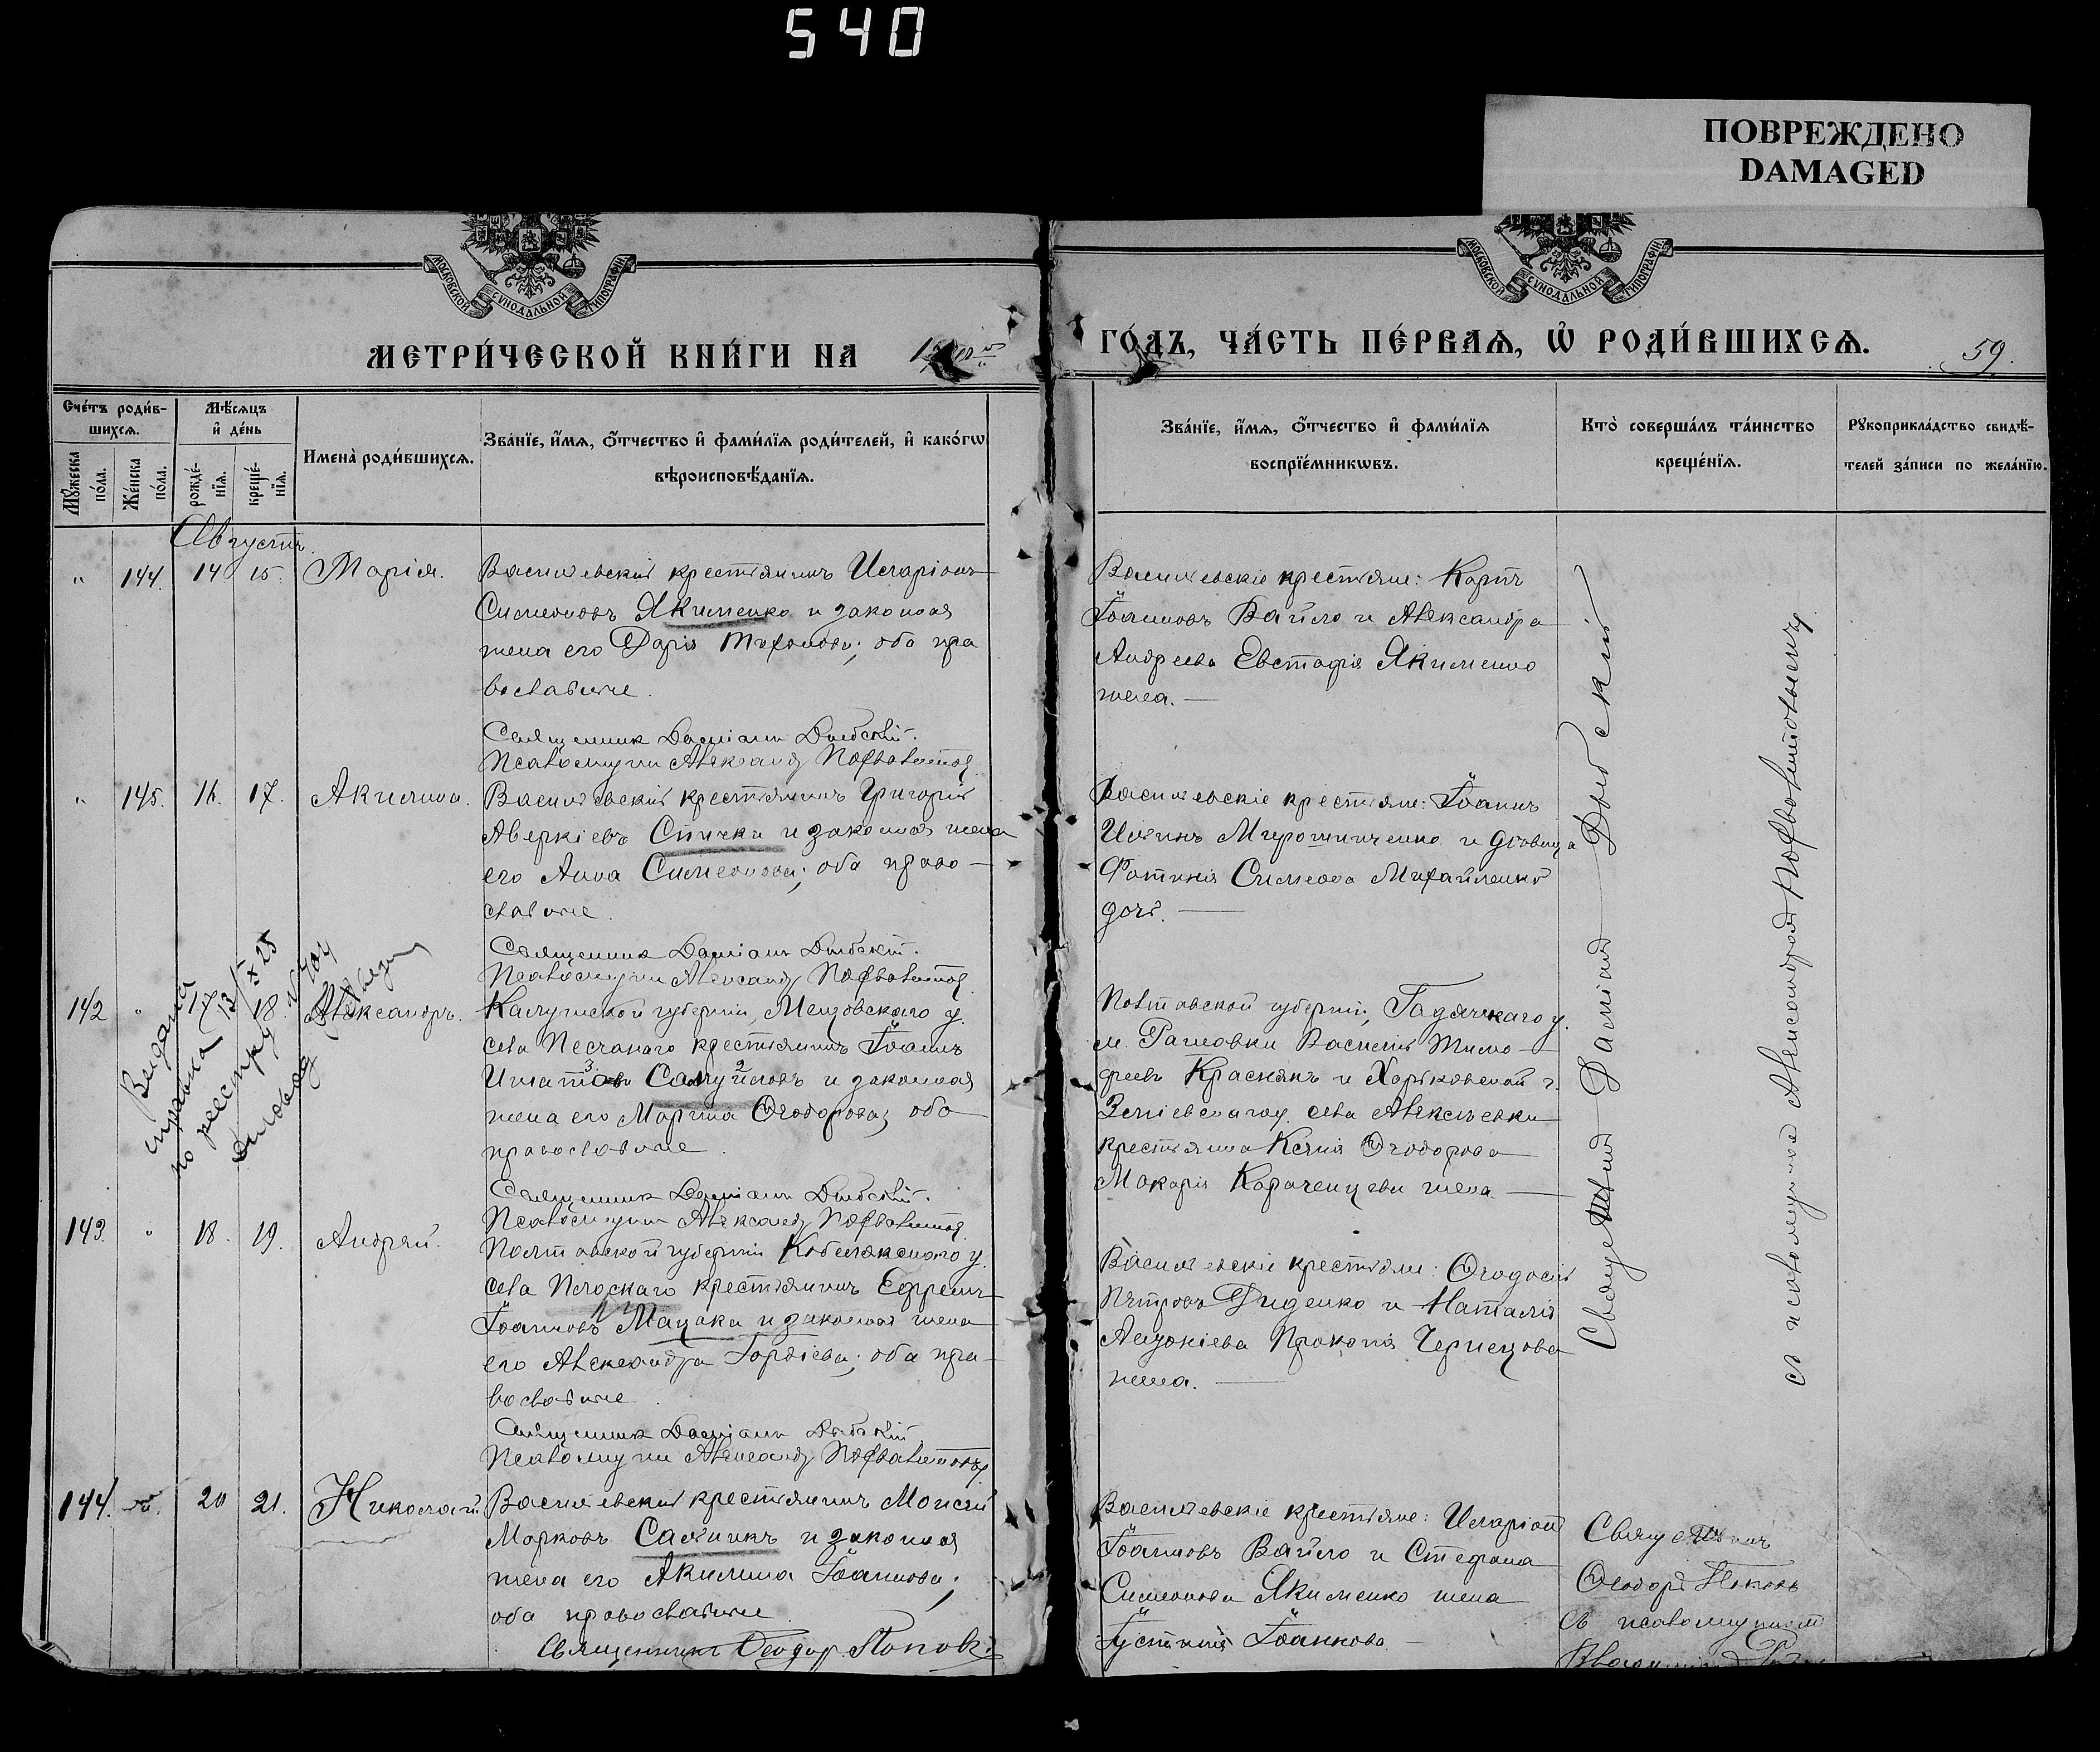 540
ПОВРЕЖДЕНО
DAMAGED
МОСКОВСКОЙ СѴНОДАЛЬНОЙ ТИПОГРАФІИ
МОСКОВСКОЙ СѴНОДАЛЬНОЙ ТИПОГРАФІИ
МЕТРИ́ЧЕСКОЙ КНИ́ГИ НА
ГО́ДЪ, ЧА́СТЬ ПЕ́РВАѦ, Ѡ҆ РОДИ́ВШИХСѦ.
59.
Сче́тъ роди́в-
шихсѧ.
Мѣ́сѧцъ
и҆ де́нь
Мꙋ́жеска
по́ла.
Же́нска
по́ла.
рожде́-
нїѧ.
креще́-
нїѧ.
Имена̀ роди́вшихсѧ.
Зва́нїе, и҆́мѧ, ѻ҆́тчество и҆ фами́лїѧ роди́телей, и҆ како́гѡ
вѣроисповѣ́данїѧ.
Зва́нїе, и҆́мѧ, ѻ҆́тчество и҆ фами́лїѧ
воспрїе́мникѡвъ.
Кто̀ соверша́лъ та́инство
креще́нїѧ.
Рꙋкоприкла́дство свидѣ́-
телей за́писи по жела́нїю.
Августъ.
" 144. 14 15. Марія.
Васильевскій крестьянинъ Иларіонъ
Симеоновъ Якименко и законная
жена его Дарія Тихонова; оба пра
вославные.
Священник Даміан Дыбскій.
Псаломщик Александр
Васильевскіе крестьяне: Карпъ
Іоанновъ Вайло и Александра
Андреева Евстафія Якименко
жена.
" 145. 16. 17. Акилина.
Васильевскій крестьянинъ Григорій
Аверкіевъ Спичка и законная жена
его Анна Симеонова; оба право-
славные.
Священник Даміан Дыбскій.
Псаломщик Александр
Васильевскіе крестьяне: Іоаннъ
Ильинъ Мирошниченко и дѣвица
Фотинія Симеона Михайленко
дочь.
Видана
справка 13/IX 25
по реестру № 704
142 " 17 18. Александръ.
Калужской губерніи, Мещовскаго у.
села Песчанаго крестьянинъ Іоаннъ
Игнатовъ Самуйловъ и законная
жена его Марина Ѳеодорова; оба
православные.
Священник Даміан Дыбскій.
Псаломщик Александр
Полтавской губерніи, Гадячскаго у.
м. Рашовки Василій Тимо-
феевъ Краснянъ и Харьковской г.
Зміевскаго у. села Алексѣевки
крестьянка Ксенія Ѳеодорова
Макарія Караченцева жена
143. " 18. 19. Андрей.
Полтавской губерніи Кобелякскаго у.
села Плоскаго крестьянинъ Ефремъ
Іоанновъ Мацака и законная жена
его Александра Гордіева; оба пра-
вославные.
Священник Даміан Дыбскій.
Псаломщик Александр
Васильевскіе крестьяне: Ѳеодосій
Петровъ Диденко и Наталія
Прокопія Чернецова
жена.
144. 20 21. Николай.
Васильевскій крестьянинъ Моисей
Марковъ Сальникъ и законная
жена его Акилина Іоаннова;
оба православные.
Священникъ Ѳеодоръ Поповъ
Васильевскіе крестьяне: Иларіонъ
Іоанновъ Вайло и Стефана
Симеонова Якименко жена
Іустинія Іоаннова
Священникъ Даміанъ Дыбскій
съ псаломщикомъ Александромъ
Священникъ
Ѳеодоръ Поповъ
съ псаломщикомъ